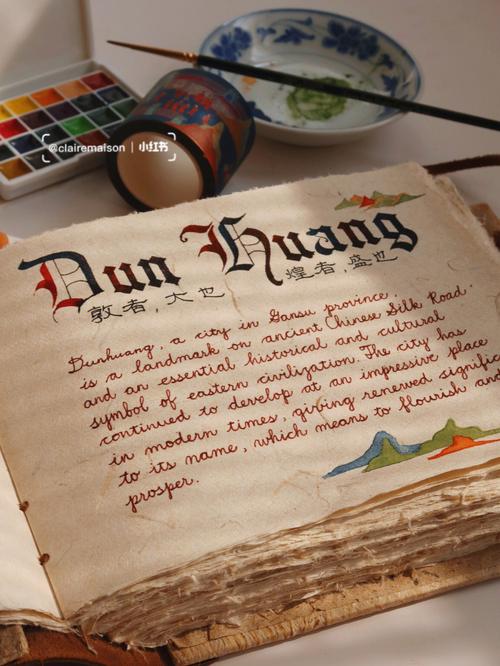 @clairemaison | 小红书
Dun Huang
敦者,大也
煌者,盛也
Dunhuang, a city in Gansu province,
is a landmark on ancient Chinese Silk Road.
and an essential historical and cultural
symbol of eastern civilization. The city has
continued to develop at an impressive place
in modern times, giving renewed signific
to its name, which means to flourish and
prosper.